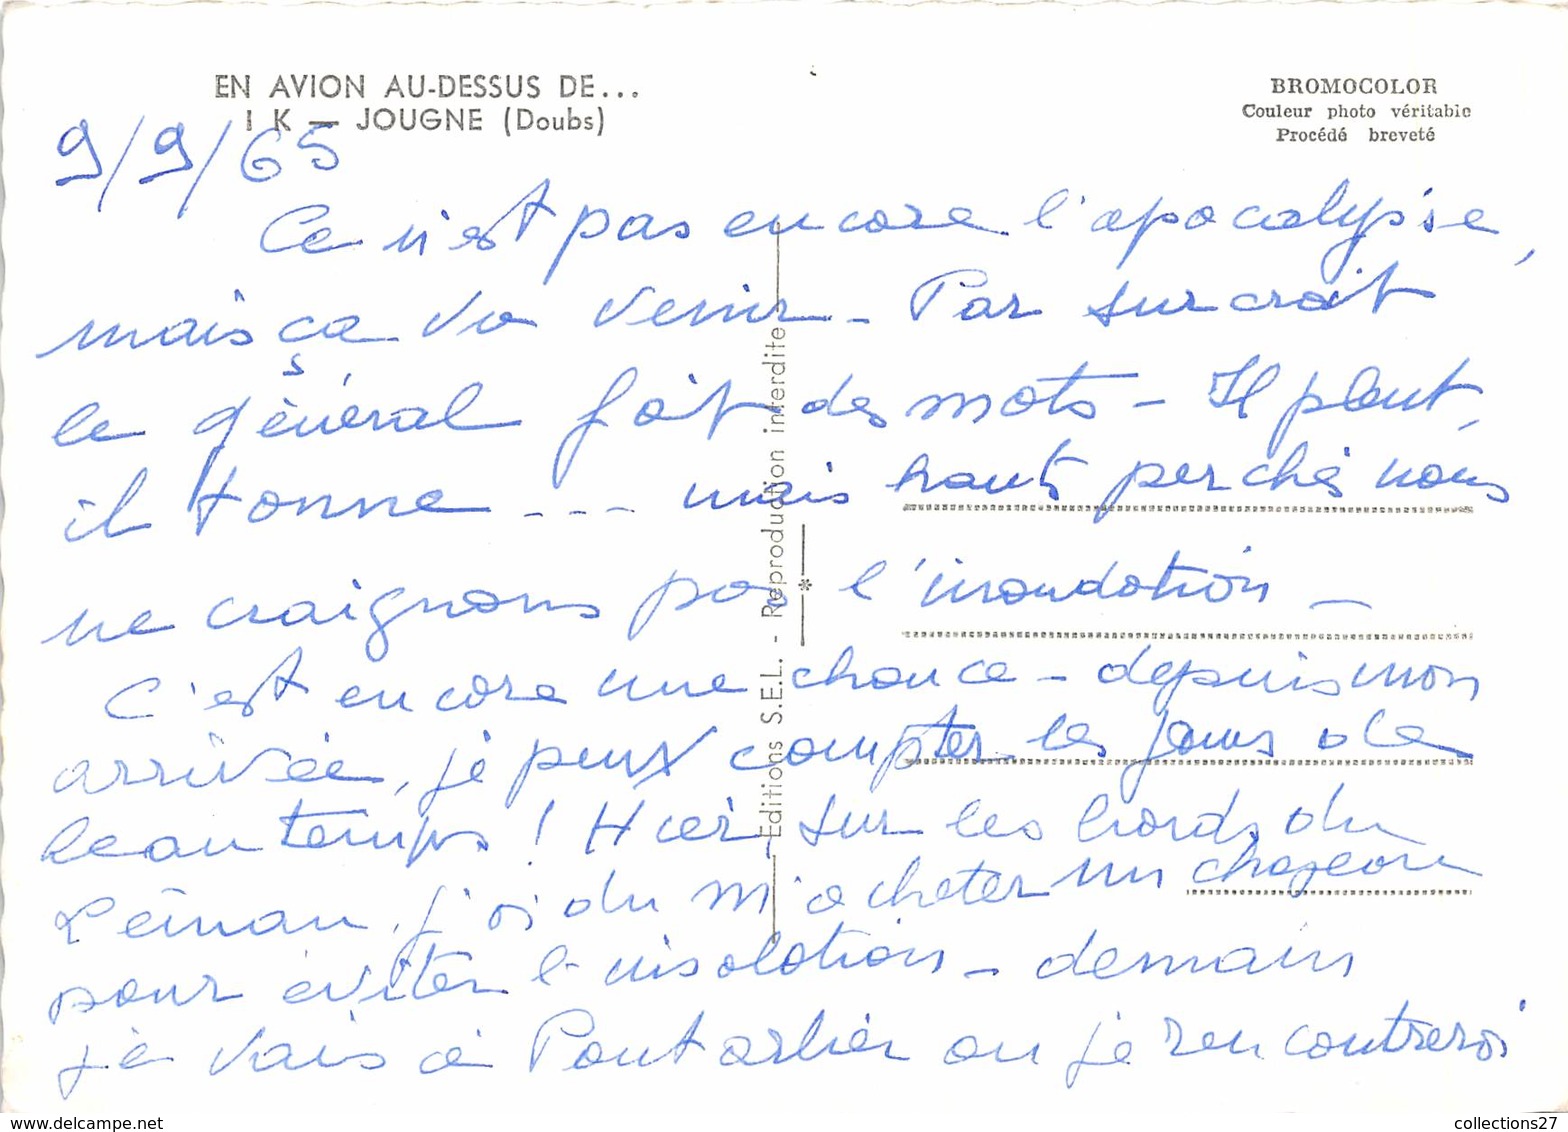 EN AVION AU-DESSUS DE...
1 K — JOUGNE (Doubs)
BROMOCOLOR
Couleur photo véritable
Procédé breveté
9/9/65
Ce n'est pas encore l'apocalypse,
mais ça va venir - Par surcroit
le général fait des mots - Il pleut,
il tonne - - - mais haut perchés nous
ne craignons pas l'inondation -
C'est encore une chance - depuis mon
arrivée, je peux compter les jours de
beau temps ! Hier, sur les bords du
Léman, j'ai du m'acheter un chapeau
pour éviter l'insolation - demain
je vais à Pontarlier ou je rencontrerai
Editions S.E.L. - Reproduction interdite
*
collections27
www.delcampe.net